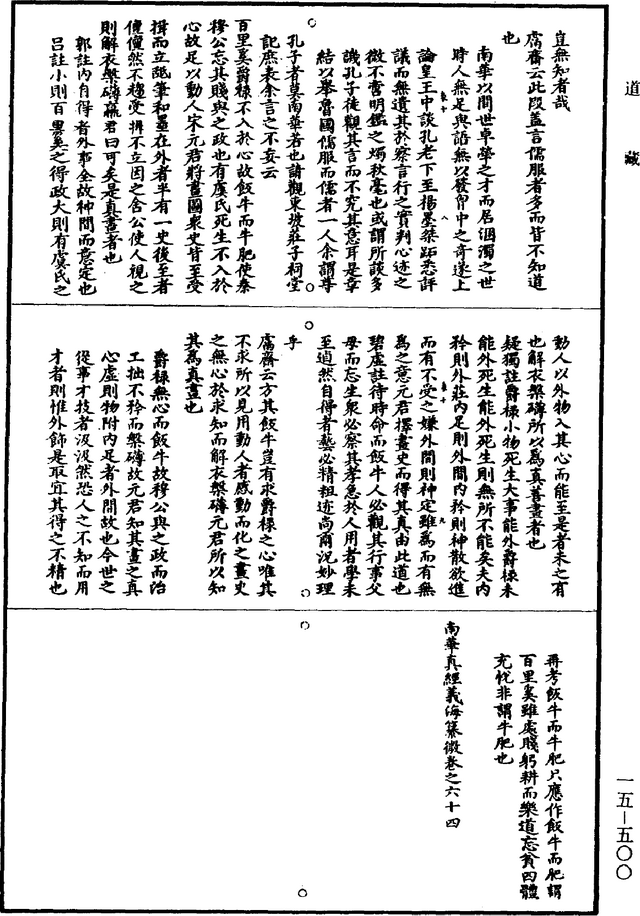 道藏
豈無知者哉
鬳齋云此段蓋言儒服者多而皆不知道
也
南華以間世卓犖之才而居溷濁之世
時人無足與語無以發胷中之奇遂上
論皇王中談孔老下至揚墨桀跖悉評
議而無遺其於察言行之實判心迹之
微不啻明鑑之燭秋毫也或謂所談多
譏孔子徒觀其言而不究其意耳是章
結以舉魯國儒服而儒者一人余謂尊
孔子者莫南華若也請觀東坡莊子祠堂
記庶表余言之不妄云
百里奚爵祿不入於心故飯牛而牛肥使秦
穆公忘其賤與之政也有虞氏死生不入於
心故足以動人宋元君將畫圖衆史皆至受
揖而立䑛筆和墨在外者半有一史後至者
儃儃然不趨受揖不立因之舍公使人視之
則解衣槃礴臝君曰可矣是真畫者也
郭註內自得者外事全故神閒而意定也
呂註小則百里奚之得政大則有虞氏之
動人以外物入其心而能至是者未之有
也解衣槃礴所以爲真善畫者也
疑獨註爵祿小物死生大事能外爵祿未
能外死生能外死生則無所不能矣夫內
矜則外莊內足則外閒內矜則神散欲進
而有不受之嫌外閒則神定雖爲而有無
爲之意元君擇畫史而得其真由此道也
碧虛註待時命而飯牛人必觀其行事父
母而忘生衆必察其孝急於人用者學未
至逌然自得者藝必精粗迹尚爾況妙理
乎
鬳齋云方其飯牛豈有求爵祿之心唯其
不求所以見用動人者感動而化之畫史
之無心於求知而解衣槃礴元君所以知
其爲真畫也
爵祿無心而飯牛故穆公與之政而治
工拙不矜而槃礴故元君知其畫之真
心虛則物附內足者外閒故也今世之
從事才技者汲汲然恐人之不知而用
才者則惟外飾是取宜其得之不精也
再考飯牛而牛肥只應作飯牛而肥謂
百里奚雖處賤躬耕而樂道忘貧四體
充悅非謂牛肥也
南華真經義海纂微卷之六十四
一五－五〇〇